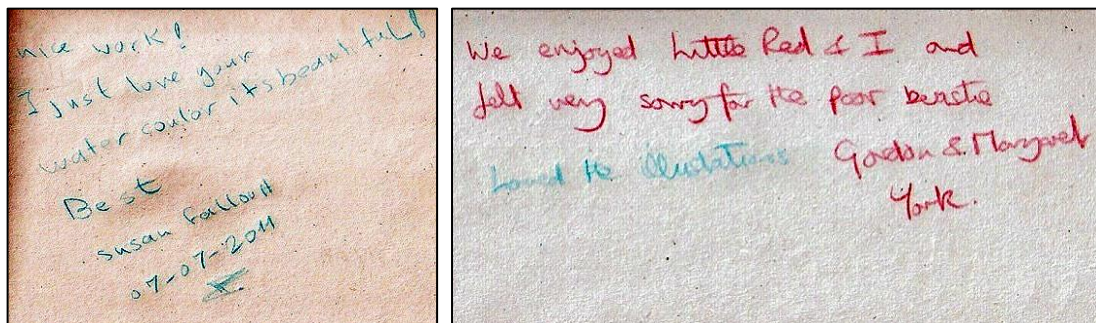 nice work!
I just love your
water coulor itsbeautiful!
Best
susan
07-07-2011
We enjoyed Little Red & I and
felt very sorry for the poor beastie
Loved the illustrations
Gordon & Margaret
York.